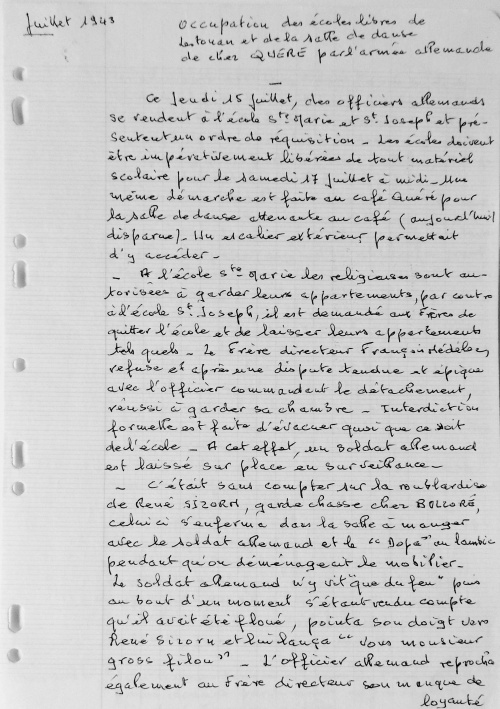 Juillet 1943
Occupation des écoles libres de
Lestonan et de la salle de danse
de chez QUÉRÉ par l'armée allemande
Ce Jeudi 15 juillet, des officiers allemands
se rendent à l'école Ste Marie et St Joseph et pré-
sentent un ordre de réquisition - Les écoles doivent
être impérativement libérées de tout matériel
scolaire pour le samedi 17 juillet à midi - Une
même démarche est faite au café Quéré pour
la salle de danse attenante au café (aujourd'hui
disparue) - Un escalier extérieur permettait
d'y accéder -
- A l'école Ste Marie les religieuses sont au-
torisées à garder leurs appartements, par contre
à l'école St Joseph, il est demandé aux Frères de
quitter l'école et de laisser leurs appartements
tels quels - Le Frère directeur François Hédélou,
refuse et après une dispute tendue et épique
avec l'officier commandant le détachement,
réussi à garder sa chambre - Interdiction
formelle est faite d'évacuer quoi que ce soit
de l'école - A cet effet, un soldat allemand
est laissé sur place en surveillance -
- C'était sans compter sur la roublardise
de René SIZORN, garde chasse chez BOLLORÉ,
celui ci s'enferma dans la salle à manger
avec le soldat allemand et le "Dopa" ou lambic
pendant qu'on déménageait le mobilier -
Le soldat allemand n'y vit "que du feu" puis
au bout d'un moment s'étant rendu compte
qu'il avait été floué, pointa son doigt vers
René Sizorn et lui lança "vous monsieur
gross filou" - L'Officier allemand reprocha
également au Frère directeur son manque de
loyauté